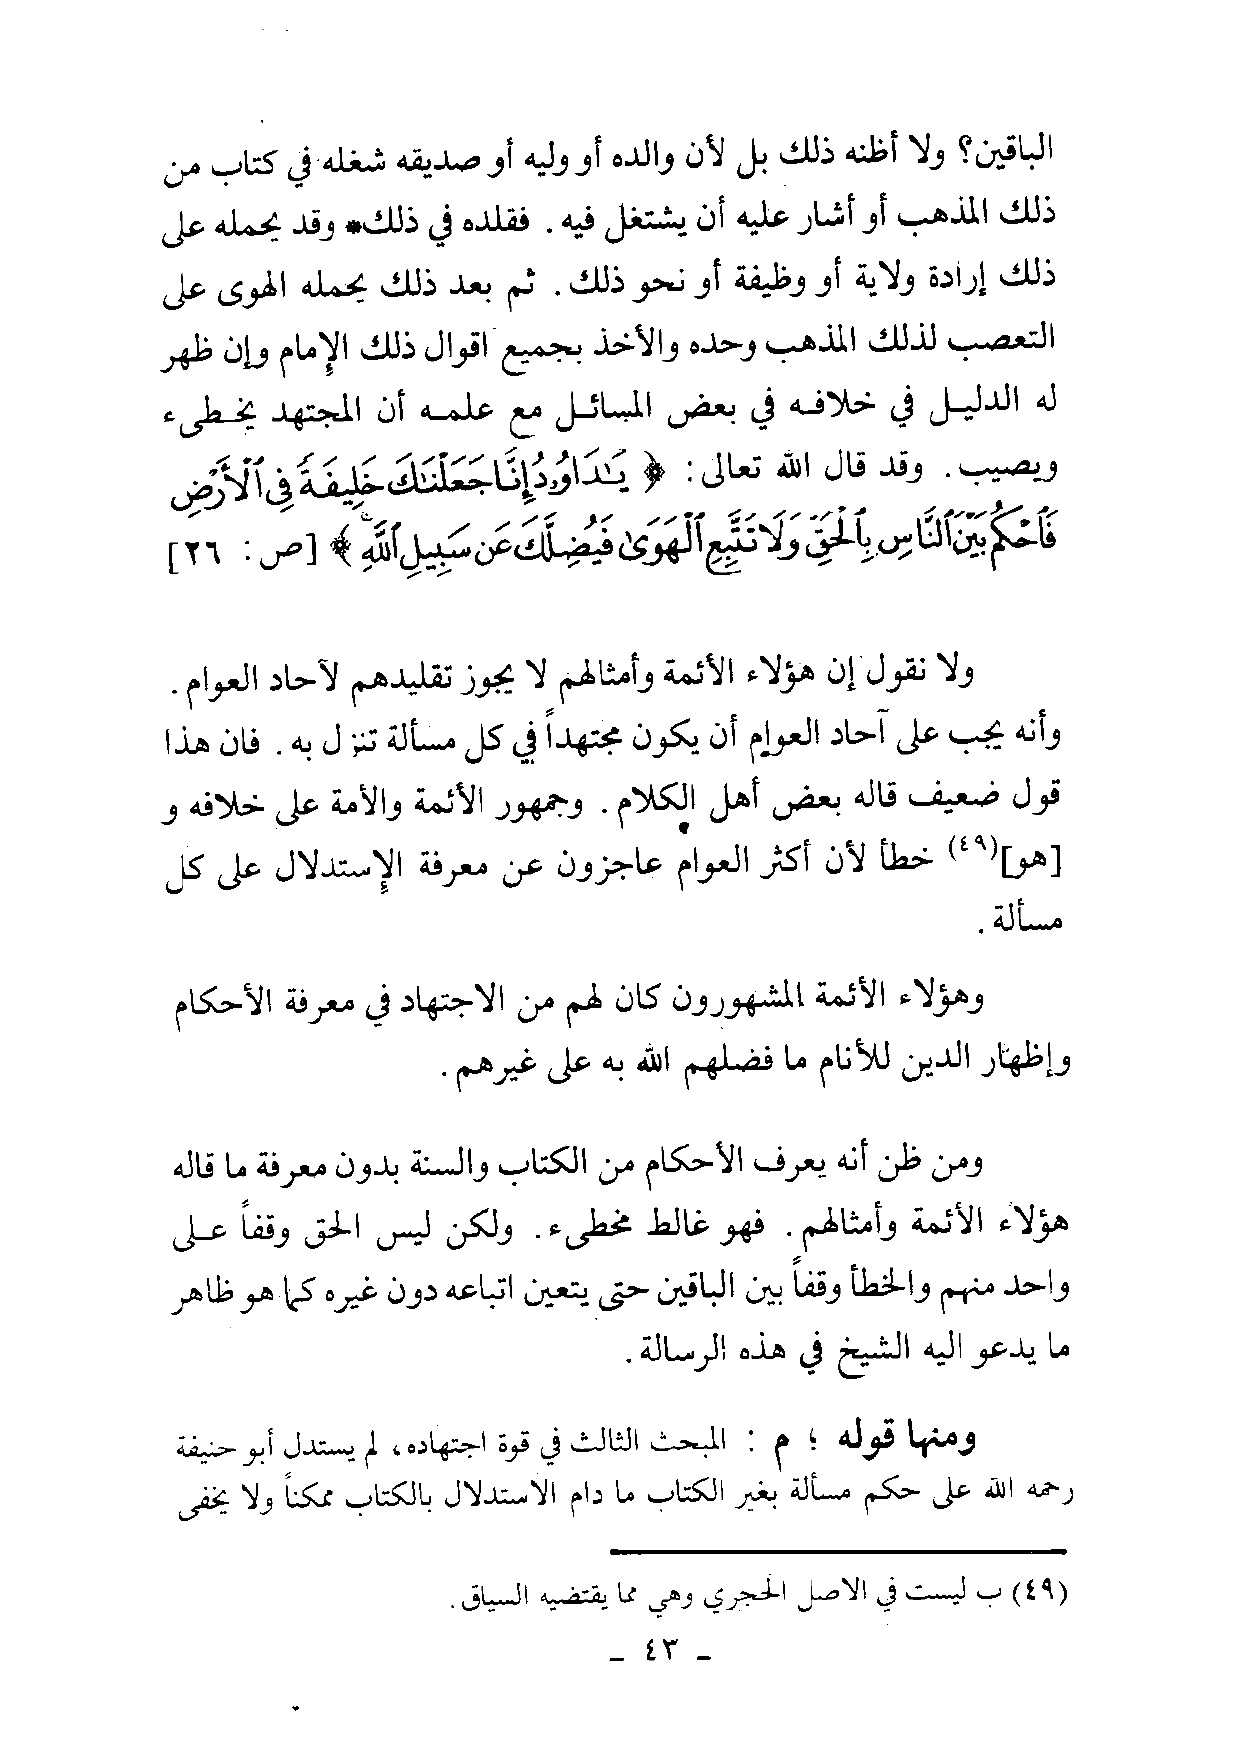 الباقين؟ ولا أظنه ذلك بل لأن والده أو وليه أو صديقه شغله في كتاب من
ذلك المذهب أو أشار عليه أن يشتغل فيه . فقلده في ذلك* وقد يحمله على
ذلك إرادة ولاية أو وظيفة أو نحو ذلك . ثم بعد ذلك يحمله الهوى على
التعصب لذلك المذهب وحده والأخذ بجميع اقوال ذلك الإمام وإن ظهر
له الدليل في خلافه في بعض المسائل مع علمه أن المجتهد يخطىء
ويصيب . وقد قال الله تعالى : ﴿ يَـٰدَاوُۥدُ إِنَّا جَعَلْنَـٰكَ خَلِيفَةً فِى ٱلْأَرْضِ
فَٱحْكُم بَيْنَ ٱلنَّاسِ بِٱلْحَقِّ وَلَا تَتَّبِعِ ٱلْهَوَىٰ فَيُضِلَّكَ عَن سَبِيلِ ٱللَّهِ ﴾ [ص : ٢٦]
ولا نقول إن هؤلاء الأئمة وأمثالهم لا يجوز تقليدهم لآحاد العوام .
وأنه يجب على آحاد العوام أن يكون مجتهداً في كل مسألة تنزل به . فان هذا
قول ضعيف قاله بعض أهل الكلام . وجمهور الأئمة والأمة على خلافه و
[هو](٤٩) خطأ لأن أكثر العوام عاجزون عن معرفة الإستدلال على كل
مسألة .
وهؤلاء الأئمة المشهورون كان لهم من الاجتهاد في معرفة الأحكام
وإظهار الدين للأنام ما فضلهم الله به على غيرهم .
ومن ظن أنه يعرف الأحكام من الكتاب والسنة بدون معرفة ما قاله
هؤلاء الأئمة وأمثالهم . فهو غالط مخطىء . ولكن ليس الحق وقفاً على
واحد منهم والخطأ وقفاً بين الباقين حتى يتعين اتباعه دون غيره كما هو ظاهر
ما يدعو اليه الشيخ في هذه الرسالة .
ومنها قوله ؛ م : المبحث الثالث في قوة اجتهاده ، لم يستدل أبو حنيفة
رحمه الله على حكم مسألة بغير الكتاب ما دام الاستدلال بالكتاب ممكناً ولا يخفى
(٤٩) ب ليست في الاصل الحجري وهي مما يقتضيه السياق .
_ ٤٣ _